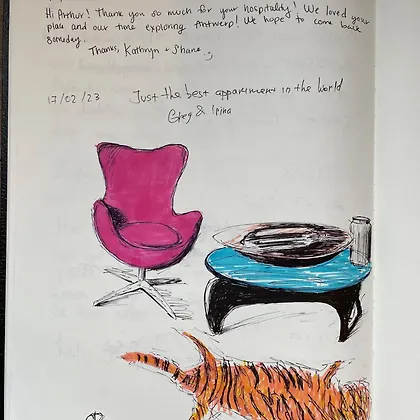 Hi Arthur! Thank you so much for your hospitality! We loved your
place and our time exploring Antwerp! We hope to come back
someday.
Thanks, Kathryn + Shane
17/02/23 Just the best appartment in the world
Greg & Irina